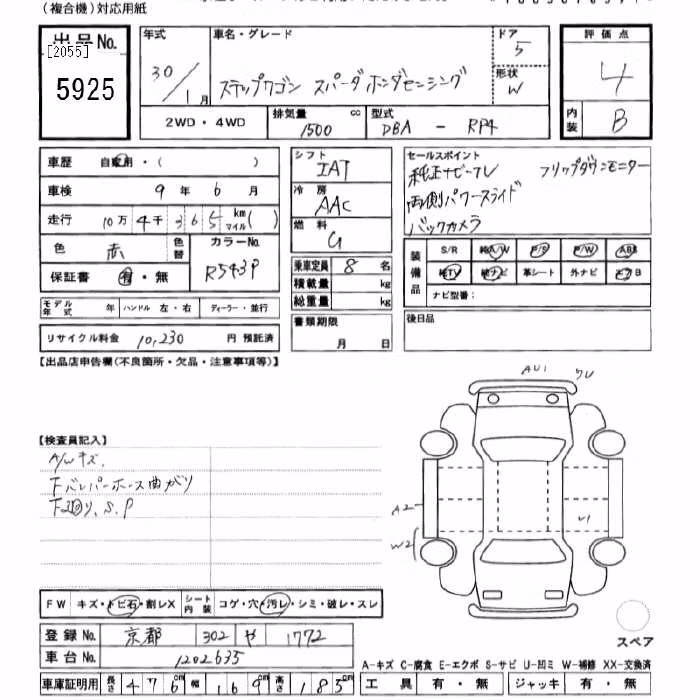 (複合機)対応用紙
出品No. [2055] 5925
年式 30/1月
車名・グレード ステップワゴン スパーダ ホンダセンシング
ドア 5
形状 W
評価点 4
内装 B
2WD・4WD
排気量 1500 cc
型式 DBA - RP4
車歴 自家用・( )
車検 9年 6月
走行 10万 4千 3 6 5 km マイル( )
色 赤 色替
カラーNo. R543P
保証書 有・無
モデル年式 年 ハンドル 左・右 ディーラー・並行
リサイクル料金 10,230 円 預託済
シフト IAT
冷房 AAC
燃料 G
乗車定員 8 名
積載量 kg
総重量 kg
書類期限 月 日
セールスポイント
純正ナビ-TV フリップダウンモニター
両側パワースライド
バックカメラ
装備品 S/R 純A/W P/S P/W ABS
純TV 純ナビ 革シート 外ナビ エアB
ナビ型番:
後日品
【出品店申告欄(不良箇所・欠品・注意事項等)】
【検査員記入】
A/Wキズ.
Fバンパーホース曲がり
下廻り、S.P
AU1
A2
W2
U1
FW キズ・トビ石・割レX シート内装 コゲ・穴・汚レ・シミ・破レ・スレ
登録No. 京都 302 や 1772
車台No. 1202635
車庫証明用 長さ 476cm 幅 169cm 高さ 185cm
スペア
A-キズ C-腐食 E-エクボ S-サビ U-凹ミ W-補修 XX-交換済
工具 有・無 ジャッキ 有・無